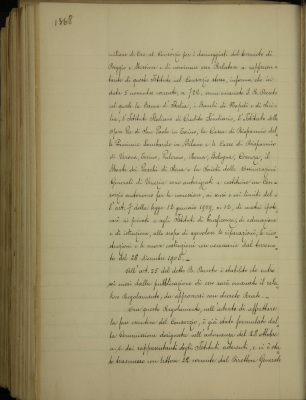 1368
nitario di Enti al Consorzio per i danneggiati dal terremoto di
Reggio e Messina e di nominare un Relatore a rappresen-
tante di questo Istituto nel Consorzio stesso, informa che in
data 5 novembre corrente, n. 721, venne emanato il R. Decreto
col quale la Banca d'Italia, i Banchi di Napoli e di Sici-
lia, l'Istituto Italiano di Credito Fondiario, l'Istituto delle
Opere Pie di San Paolo in Torino, la Cassa di Risparmio del-
le Provincie Lombarde in Milano e le Casse di Risparmio
di Verona, Torino, Palermo, Roma, Bologna, il
Monte dei Paschi di Siena e la Società delle Assicurazioni
Generali di Venezia sono autorizzati a costituire un Con-
sorzio autonomo per la concessione, nei modi e nei limiti del
l'art. 9 della legge 12 gennaio 1909, n. 12, di mutui ipote-
cari ai privati e agli Istituti di beneficenza, di educazione
e di istruzione, allo scopo di agevolare le riparazioni, le rico-
struzioni e le nuove costruzioni in conseguenza del terremo-
to del 28 dicembre 1908. —
All'art. 28 del detto R. Decreto è stabilito che entro
sei mesi dalla pubblicazione di esso sarà emanato il rela-
tivo Regolamento, da approvarsi con decreto Reale. —
Ora questo Regolamento, nell'intento di affrettare
la costituzione del Consorzio, è già stato formulato dal-
la Commissione designata nell'adunanza del 28 ottobre
dai rappresentanti degli Istituti aderenti, e ci è sta-
to trasmesso con lettera 22 corrente dal Direttore Generale